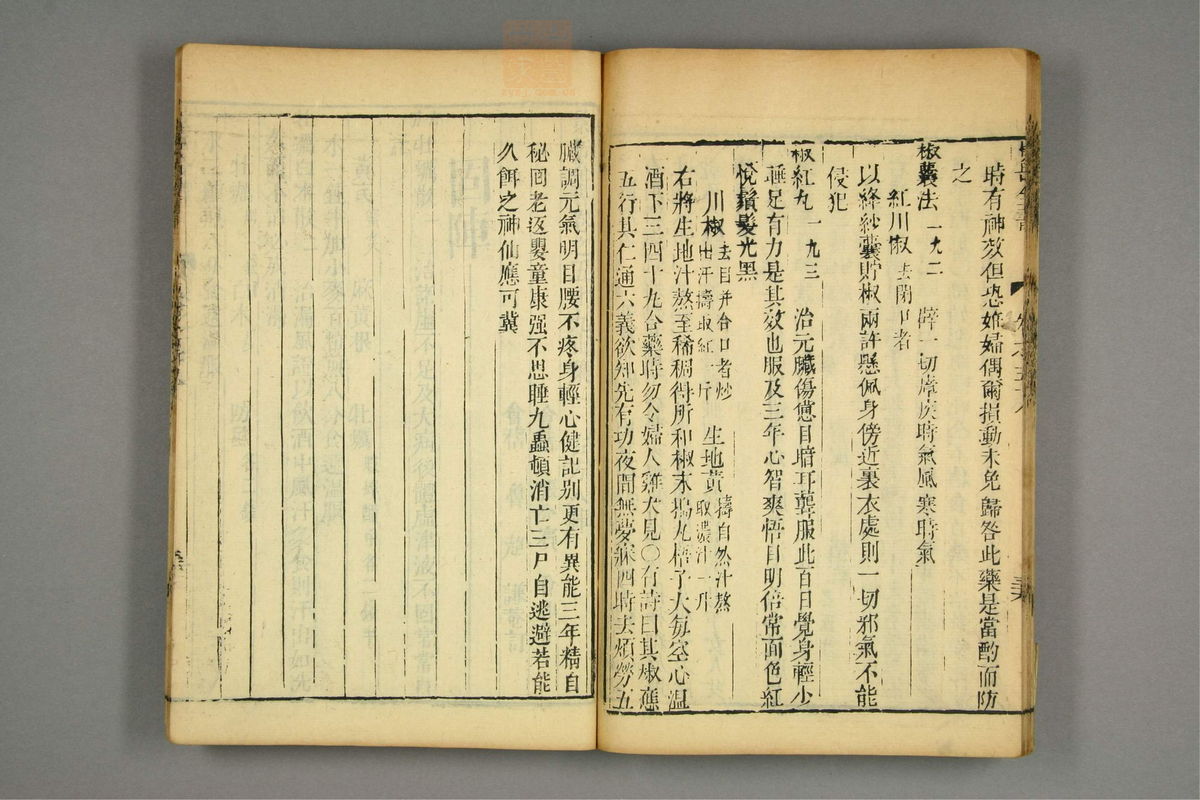 時有神效但恐姙婦偶爾損動未免歸咎此藥是當酌而防
之
椒囊法 一九二 辟一切瘴疾時氣風寒時氣
紅川椒 去閉口者
以絳紗囊貯椒兩許懸佩身傍近裏衣處則一切邪氣不能
侵犯
椒紅丸 一九三 治元臟傷憊目暗耳聾服此百日覺身輕少
睡足有力是其效也服及三年心智爽悟目明倍常面色紅
悅鬚髮光黑
川椒 去目并合口者炒出汗擣取紅一斤 生地黃 擣自然汁熬取濃汁一斤
右將生地汁熬至稀稠得所和椒末搗丸梧子大每空心溫
酒下三四十丸合藥時勿令婦人雞犬見○有詩曰其椒應
五行其仁通六義欲知先有功夜間無夢寐四時去煩勞五
臟調元氣明目腰不疼身輕心健記別更有異能三年精自
秘回老返嬰童康强不思睡九蟲頓消亡三尸自逃避若能
久餌之神仙應可冀